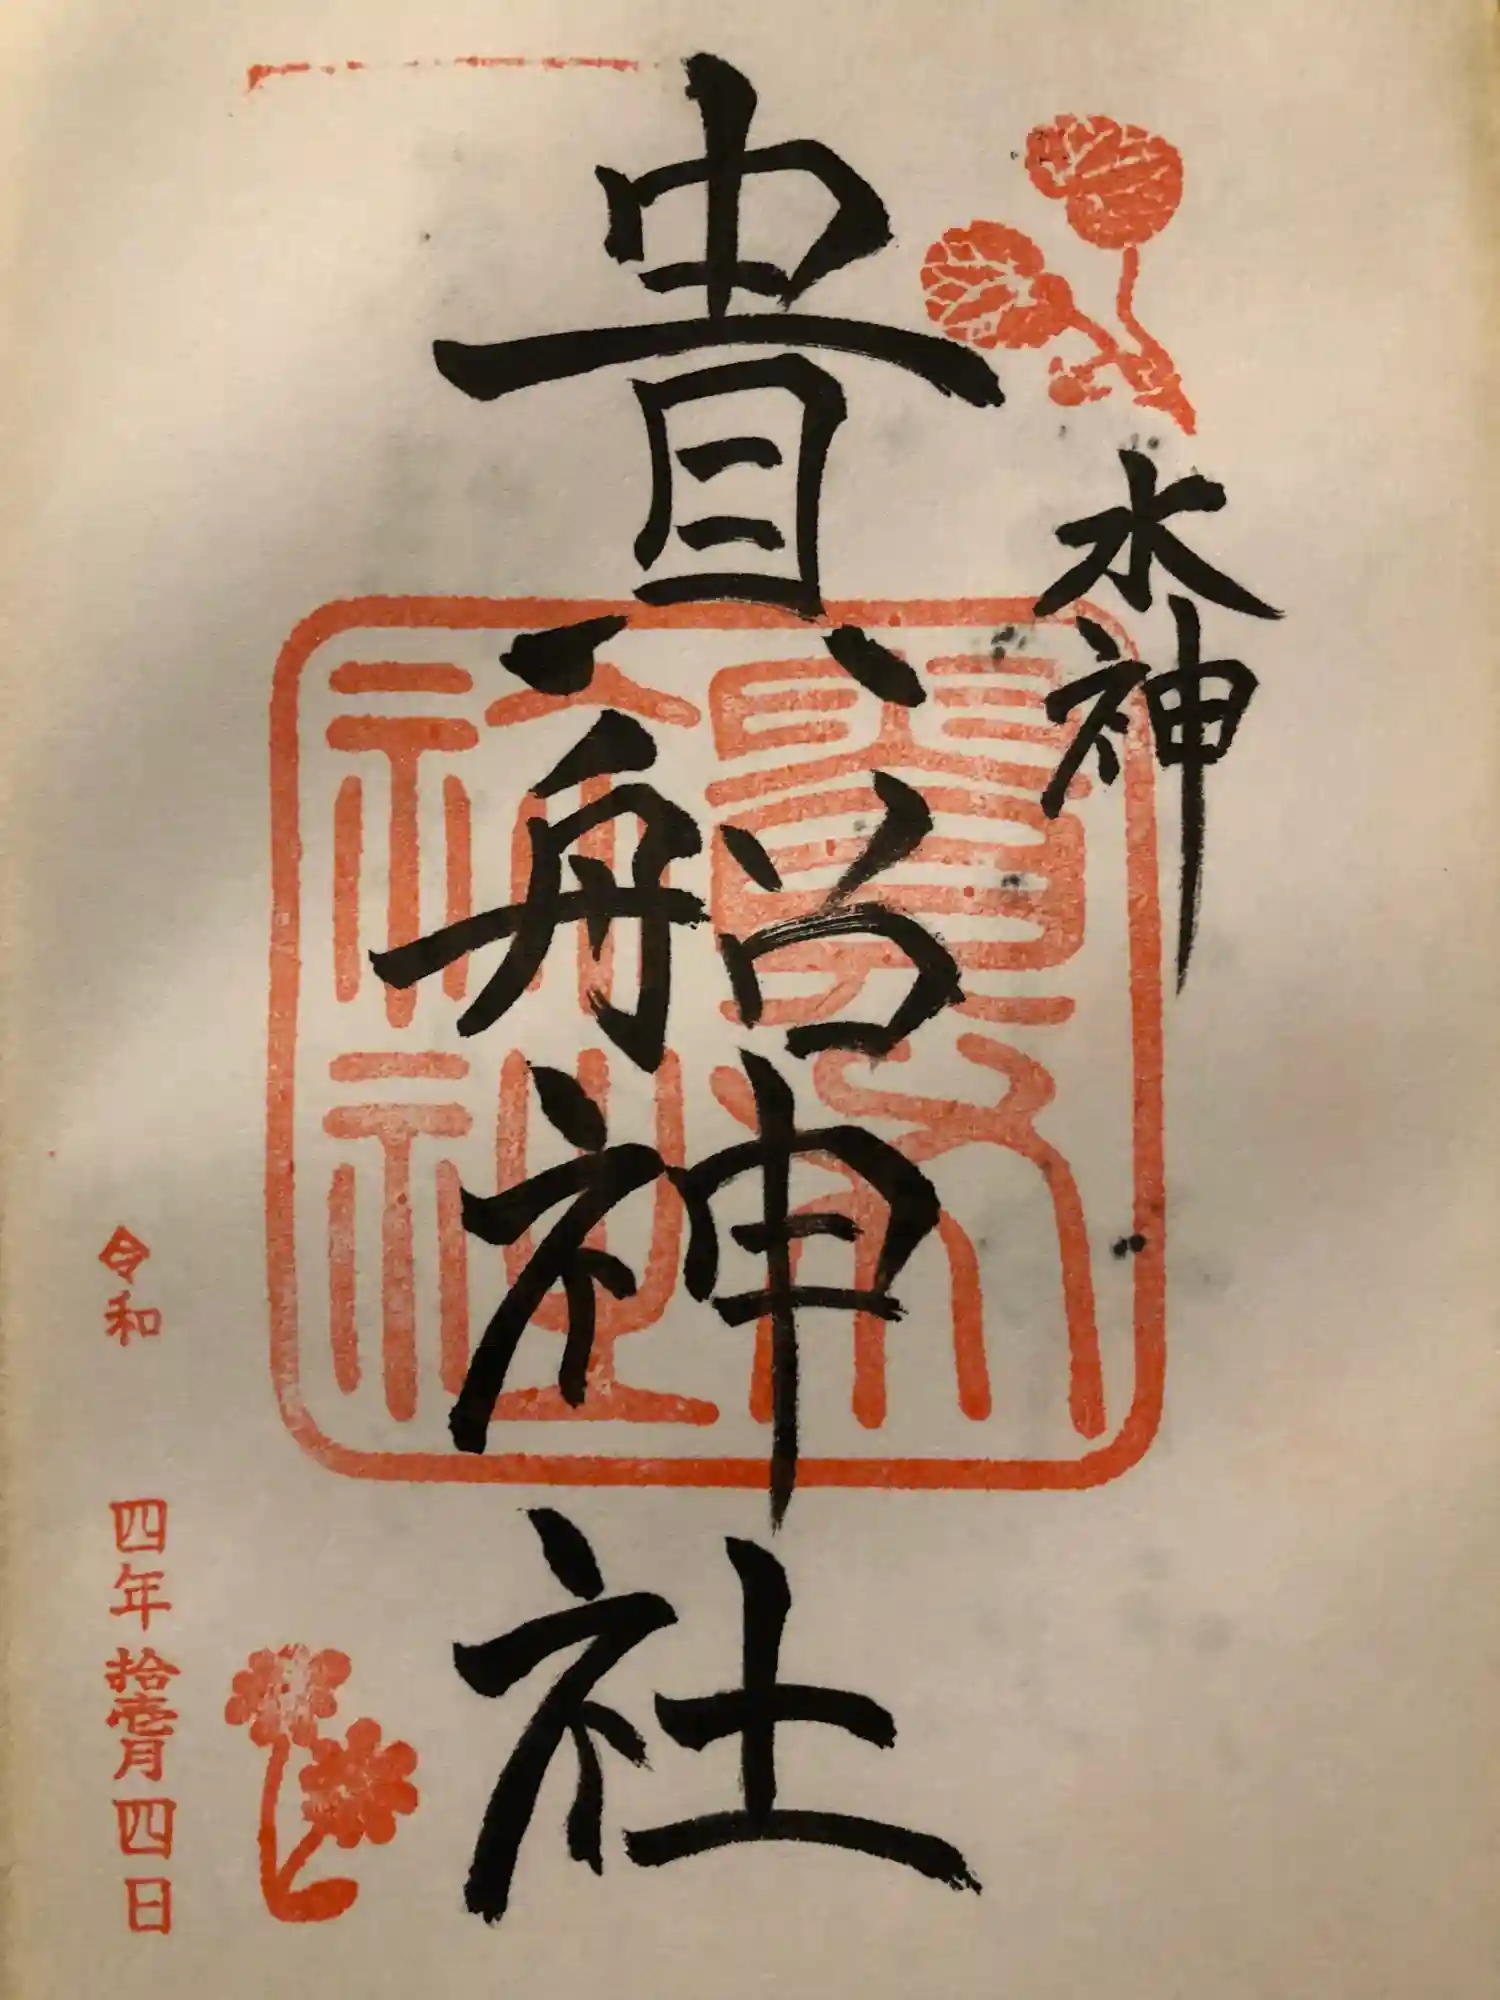 水神
貴船神社
貴船神社
令和四年拾壱月四日